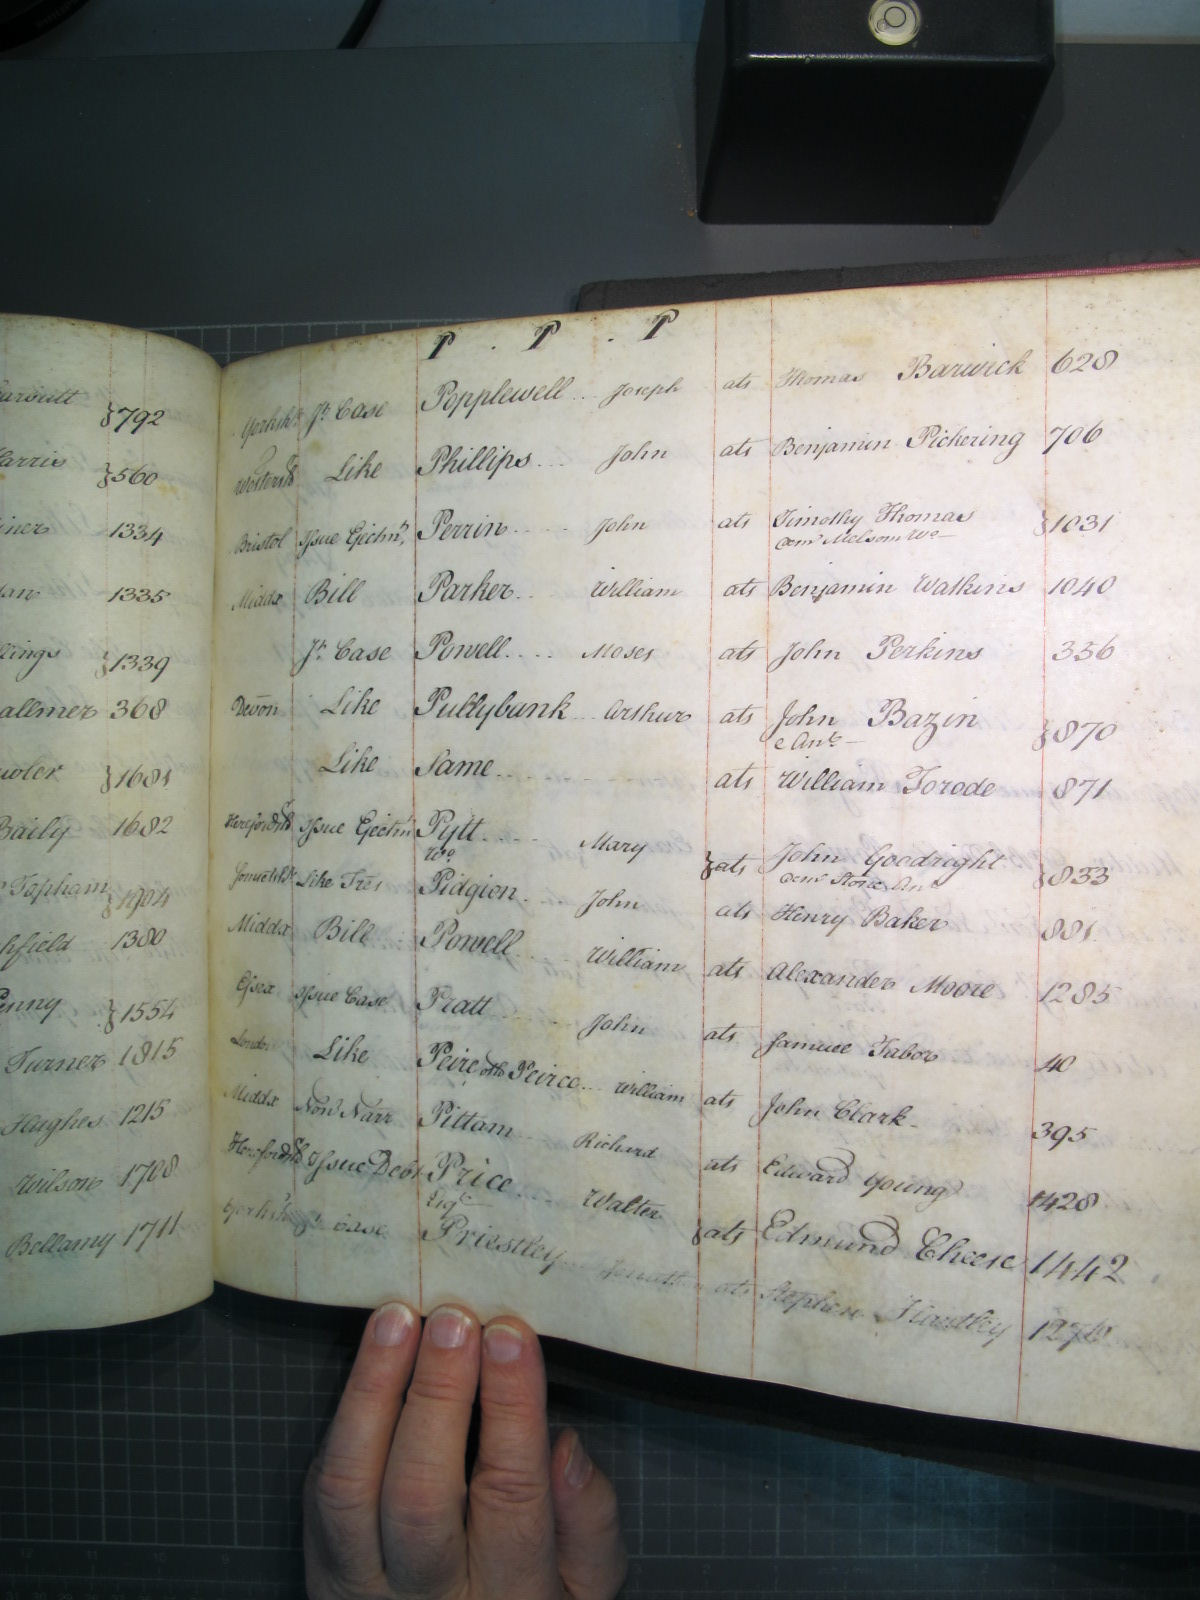 P . P . P
792
560
1334
1335
1339
allmer 368
1681
Baily 1682
Topham
hfield 1380
enny 1554
Turner 1815
Hughes 1215
Wilson 1708
Bellamy 1711
Yorksh Jt. Case Popplewell Joseph ats Thomas Barwick 628
Like Phillips John ats Benjamin Pickering 706
Bristol Issue Ejectmt. Perrin John ats Timothy Thomas 1031
Middx Bill Parker William ats Benjamin Watkins 1040
Jt. Case Powell Moses ats John Perkins 336
Devon Like Pullybunk Arthur ats John Bazin 870
Like Same ats William Torode 871
Issue Ejectmt Pytt Mary ats John Goodright 833
Wo.
Like Pidgion John ats Henry Baker 881
Middx Bill Powell William ats Alexander Moore 1285
Essex Issue Case Pratt John ats Samuel Tabor 40
London Like Peirce William ats John Clark 395
Middx Non Narr Pittam Richard ats Edward Young 1428
Issue Debt Price Walter ats Edmund Cheese 1442
Esqr.
Case Priestley ats Stephen Hartley